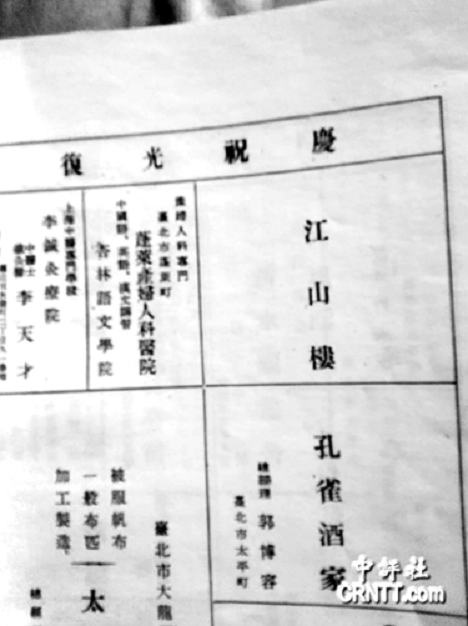 慶祝光復
江山樓
產婦人科專門
臺北市蓬萊町
蓬萊產婦人科醫院
中國語、英語、漢文講習
杏林語文學院
上海中醫專門學校
李誠灸療院
中醫士
李天才
孔雀酒家
總經理 郭博容
臺北市太平町
臺北市大龍
被服帆布
一般布匹
加工製造
太
中評社
CRNTT.com